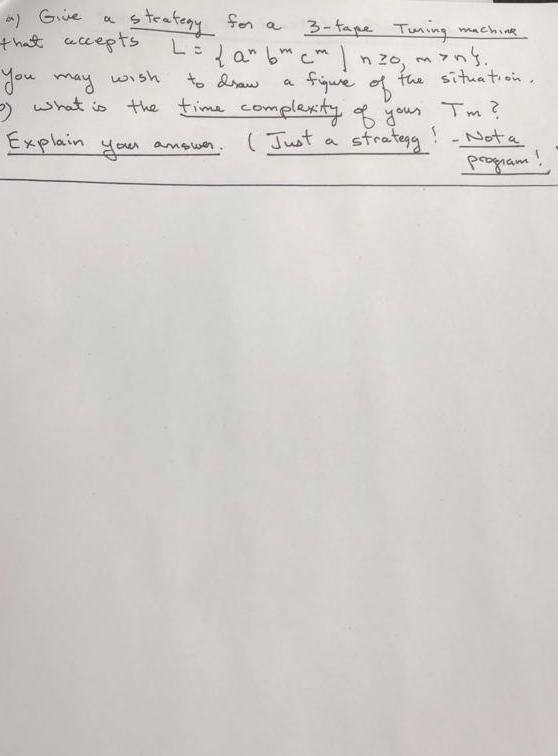 a) Give a strategy for a 3-tape Turing machine
that accepts L = { aⁿ bᵐ cᵐ | n ≥ 0, m > n }.
You may wish to draw a figure of the situation.
b) What is the time complexity of your Tm?
Explain your answer. ( Just a strategy! - Not a
program!